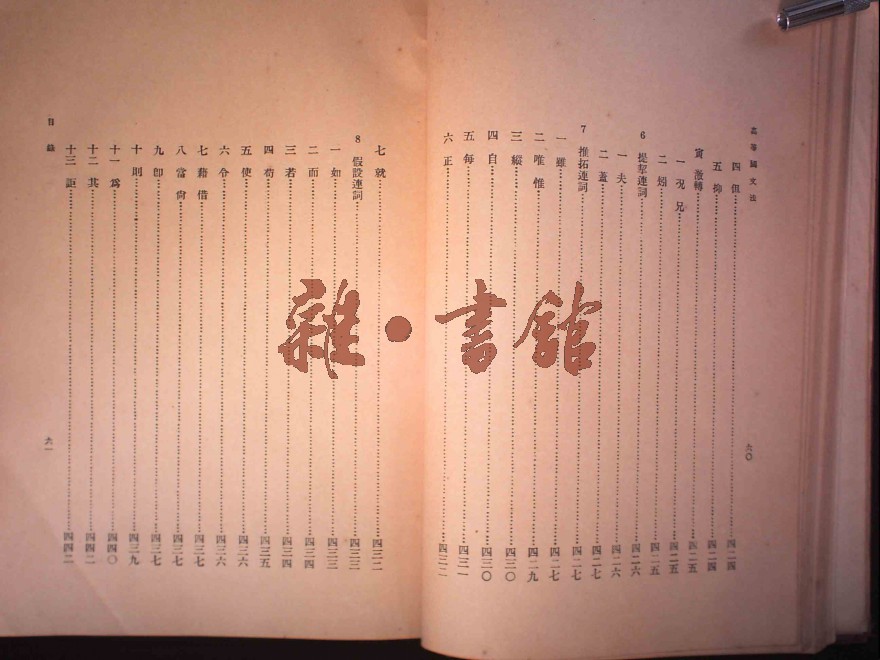 高等國文法
四 但……四二四
五 抑……四二四
寅 激轉……四二五
一 況 兄……四二五
二 矧……四二五
6 提挈連詞……四二六
一 夫……四二六
二 蓋……四二七
7 推拓連詞……四二七
一 雖……四二七
二 唯 惟……四二九
三 縱……四三〇
四 自……四三〇
五 每……四三一
六 正……四三二
六〇
目錄
七 就……四三二
8 假設連詞……四三三
一 如……四三三
二 而……四三四
三 若……四三四
四 苟……四三五
五 使……四三六
六 令……四三六
七 藉 借……四三七
八 當 尙……四三七
九 卽……四三七
十 則……四三九
十一 爲……四四〇
十二 其……四四二
十三 詎……四四二
六一
雜·書館